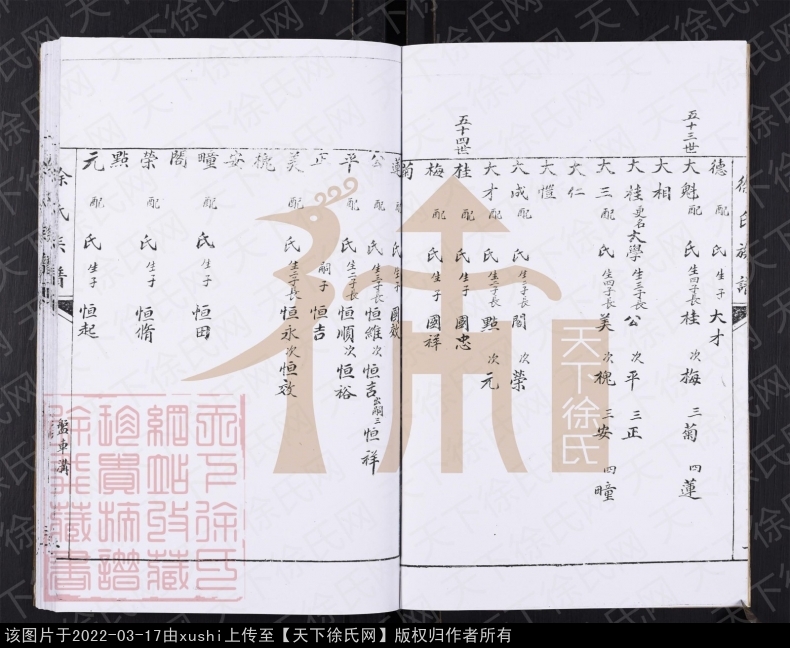 徐氏族譜
五十三世
德 配 氏 生子 大才
大魁 配 氏 生四子長 桂 次 梅 三 菊 四 蓮
大相
大桂 更名大學 生三子長 公 次 平 三 正
大三 配 氏 生四子長 美 次 槐 三 安 四 疃
大仁
大愷
大成 配 氏 生二子長 閣 次 榮
大才 配 氏 生二子長 點 次 元
五十四世
桂 配 氏 生子 國忠
梅 配 氏 生子 國祥
菊
蓮 配 氏 生子 國效
公 配 氏 生三子長 恒維 次 恒吉 出嗣 三 恒祥
平 配 氏 生二子長 恒順 次 恒裕
正 嗣子 恒吉
美 配 氏 生二子長 恒永 次 恒效
槐
安
疃 配 氏 生子 恒田
閣
榮 配 氏 生子 恒脩
點
元 配 氏 生子 恒起
徐氏族譜
盤車溝
天下徐氏
天下徐氏
網站收藏
珍貴摘譜
徐氏藏書
天下徐氏网
该图片于2022-03-17由xushi上传至【天下徐氏网】版权归作者所有